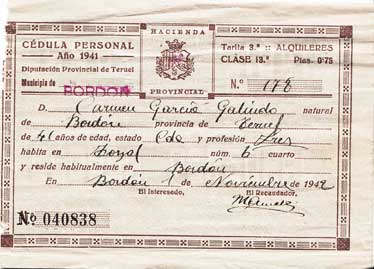 CÉDULA PERSONAL
Año 1941
Diputación Provincial de Teruel
Municipio de BORDON
HACIENDA
PROVINCIAL
Tarifa 3.ª :: ALQUILERES
CLASE 13.ª Ptas. 0'75
N.º 178
D. Carmen García Galindo natural
de Bordón provincia de Teruel
de 41 años de edad, estado Cda y profesión
habita en núm. 6 cuarto
y realde habitualmente en Bordón
En Bordón 1 de Noviembre de 1942
El Interesado, El Recaudador,
No 040838